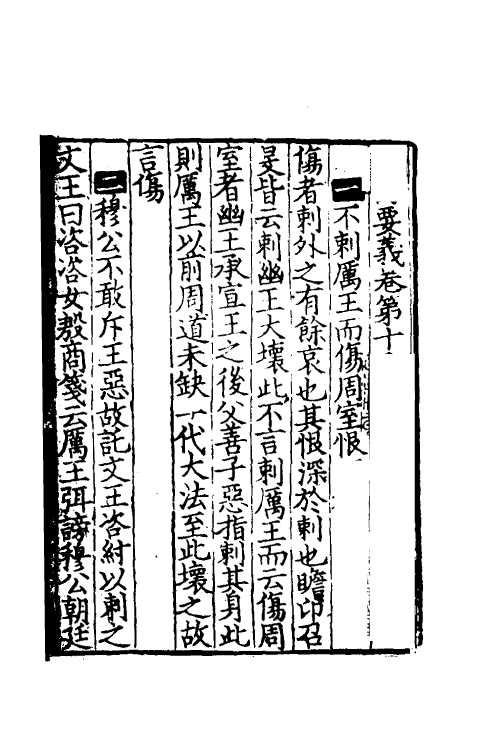 要義卷第十
一不刺厲王而傷周室恨
傷者刺外之有餘哀也其恨深於刺也瞻卬召
旻皆云刺幽王大壞此不言刺厲王而云傷周
室者幽王承宣王之後父善子惡指刺其身此
則厲王以前周道未缺一代大法至此壞之故
言傷
二穆公不敢斥王惡故託文王咨紂以刺之
文王曰咨咨女殷商箋云厲王弭謗穆公朝廷